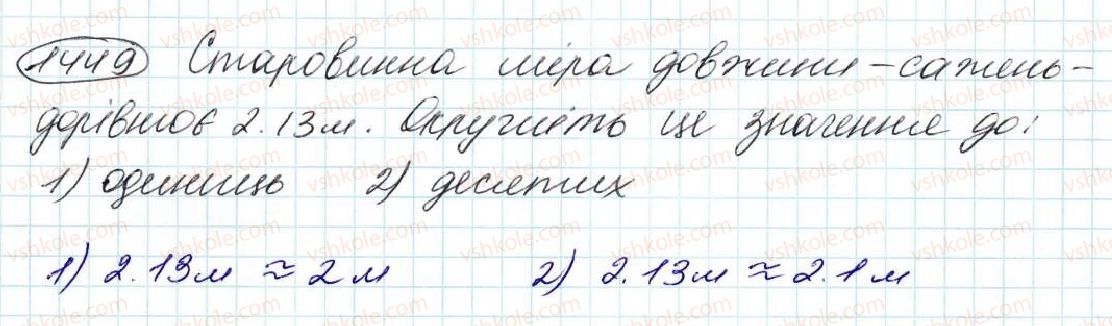 1449 Старовинна міра довжини – сажень –
дорівнює 2.13м. Округліть це значення до:
1) одиниць 2) десятих
1) 2.13м ≈ 2 м 2) 2.13м ≈ 2.1 м